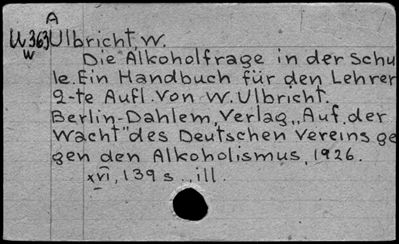 A
W363 Ulbricht, W.
w
Die Alkoholfrage in der Schu
le. Ein Handbuch für den Lehrer
2-te Aufl. Von W. Ulbricht.
Berlin-Dahlem, Verlag „Auf der
Wacht" des Deutschen Vereins ge
gen den Alkoholismus, 1926.
xvi, 139 s. ill.